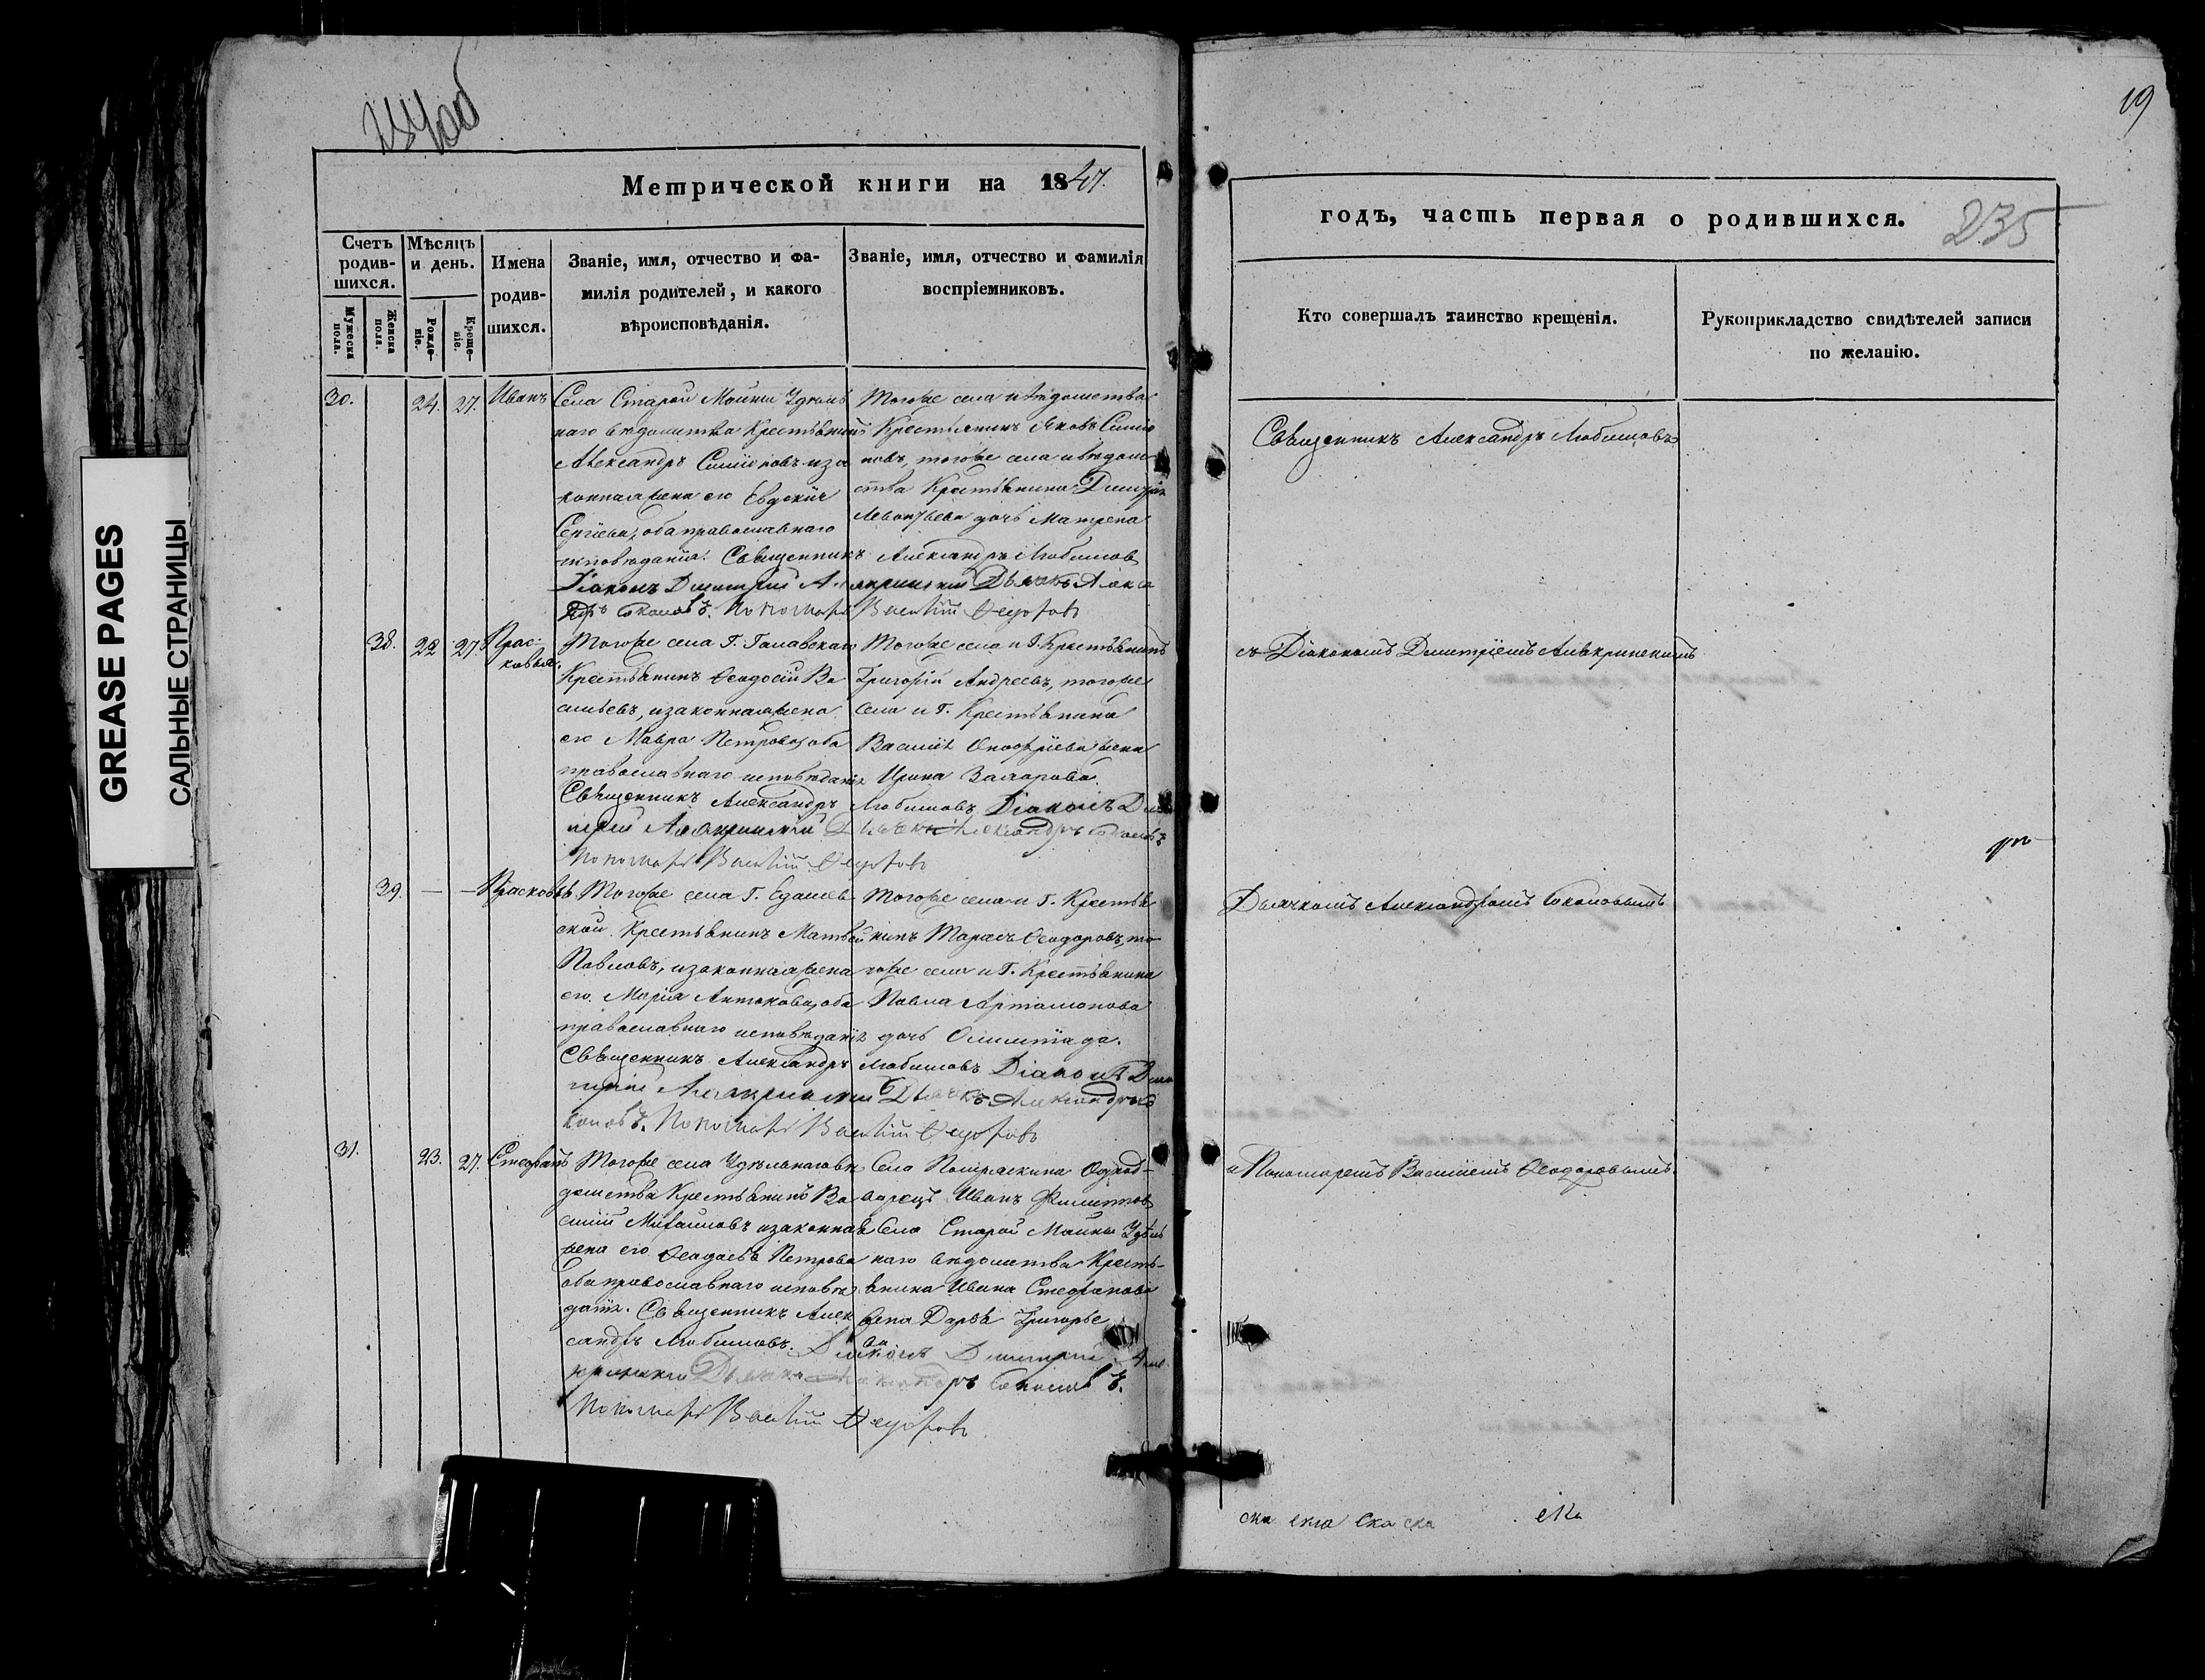 234об
19
GREASE PAGES
САЛЬНЫЕ СТРАНИЦЫ
Метрической книги на 1847.
Счетъ родив-
шихся.
Мѣсяцъ
и день.
Имена
родив-
шихся.
Званіе, имя, отчество и фа-
милія родителей, и какого
вѣроисповѣданія.
Званіе, имя, отчество и фамилія
воспріемниковъ.
Мужеска
пола.
Женска
пола.
Рожде-
ніе.
Креще-
ніе.
30. 24. 27. Иванъ
Села Старой Майны Удѣль
наго вѣдомства Крестьянинъ
Александръ Симіоновъ и за
конная жена его Евдокія
Сергіева, оба православнаго
исповѣданія. Священникъ Александръ Любимовъ
Діаконъ Димитрій Дьячокъ Алекса
Пономарь Василій Ѳедоровъ
Тогоже села и вѣдомства
Крестьянинъ Яковъ Симіо
новъ, тогоже села и вѣдом
ства Крестьянина Дмитрія
Леонтьева дочь Матрена
38. 22 27. Прас-
ковья.
Тогоже села Г.
Крестьянинъ Ѳеодосій Ва
сильевъ, и законная жена
его Мавра Петрова, оба
православнаго исповѣданія
Священникъ Александръ Любимовъ Діаконъ Дми
трій Дьячокъ Александръ
Пономарь Василій Ѳедоровъ
Тогоже села и Г. Крестьянинъ
Григорій Андреевъ, тогоже
села и Г. Крестьянина
Василія Онофріева жена
Ирина
39. — — Прасковья
Тогоже села Г.
ской Крестьянинъ Матвей
Павловъ, и законная жена
его Марія Антонова, оба
православнаго исповѣданія
Священникъ Александръ Любимовъ Діаконъ Дми
трій Дьячокъ Александръ
Пономарь Василій Ѳедоровъ
Тогоже села и Г. Крестья
нинъ Тарасъ Ѳеодоровъ, то
гоже села и Г. Крестьянина
Павла Артамонова
дочь Олимпіада.
31. 23. 27. Стефанъ
Тогоже села Удѣльнаго вѣ
домства Крестьянинъ Ва
силій Михайловъ и законная
жена его Ѳеодосья Петрова
оба православнаго исповѣ
данія. Священникъ Алек
сандръ Любимовъ. Діаконъ Димитрій
Дьячокъ
Пономарь Василій Ѳедоровъ
Села Помряскина Однод-
ворецъ Иванъ Филиппов
Села Старой Майны Удѣль
наго вѣдомства Кресть-
янина Ивана Стефанова
жена Дарья Григорье
ва
годъ, часть первая о родившихся.
235
Кто совершалъ таинство крещенія.
Рукоприкладство свидѣтелей записи
по желанію.
Священникъ Александръ Любимовъ
съ Діакономъ Дмитріемъ
Дьячкомъ Александромъ
и Пономаремъ Василіемъ Ѳеодоровымъ
ска ска ска ска ска